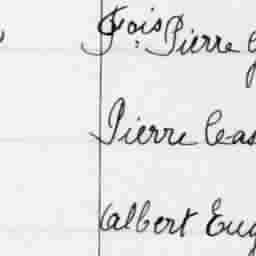 Fois Pierre
Pierre Cas
Albert Eug